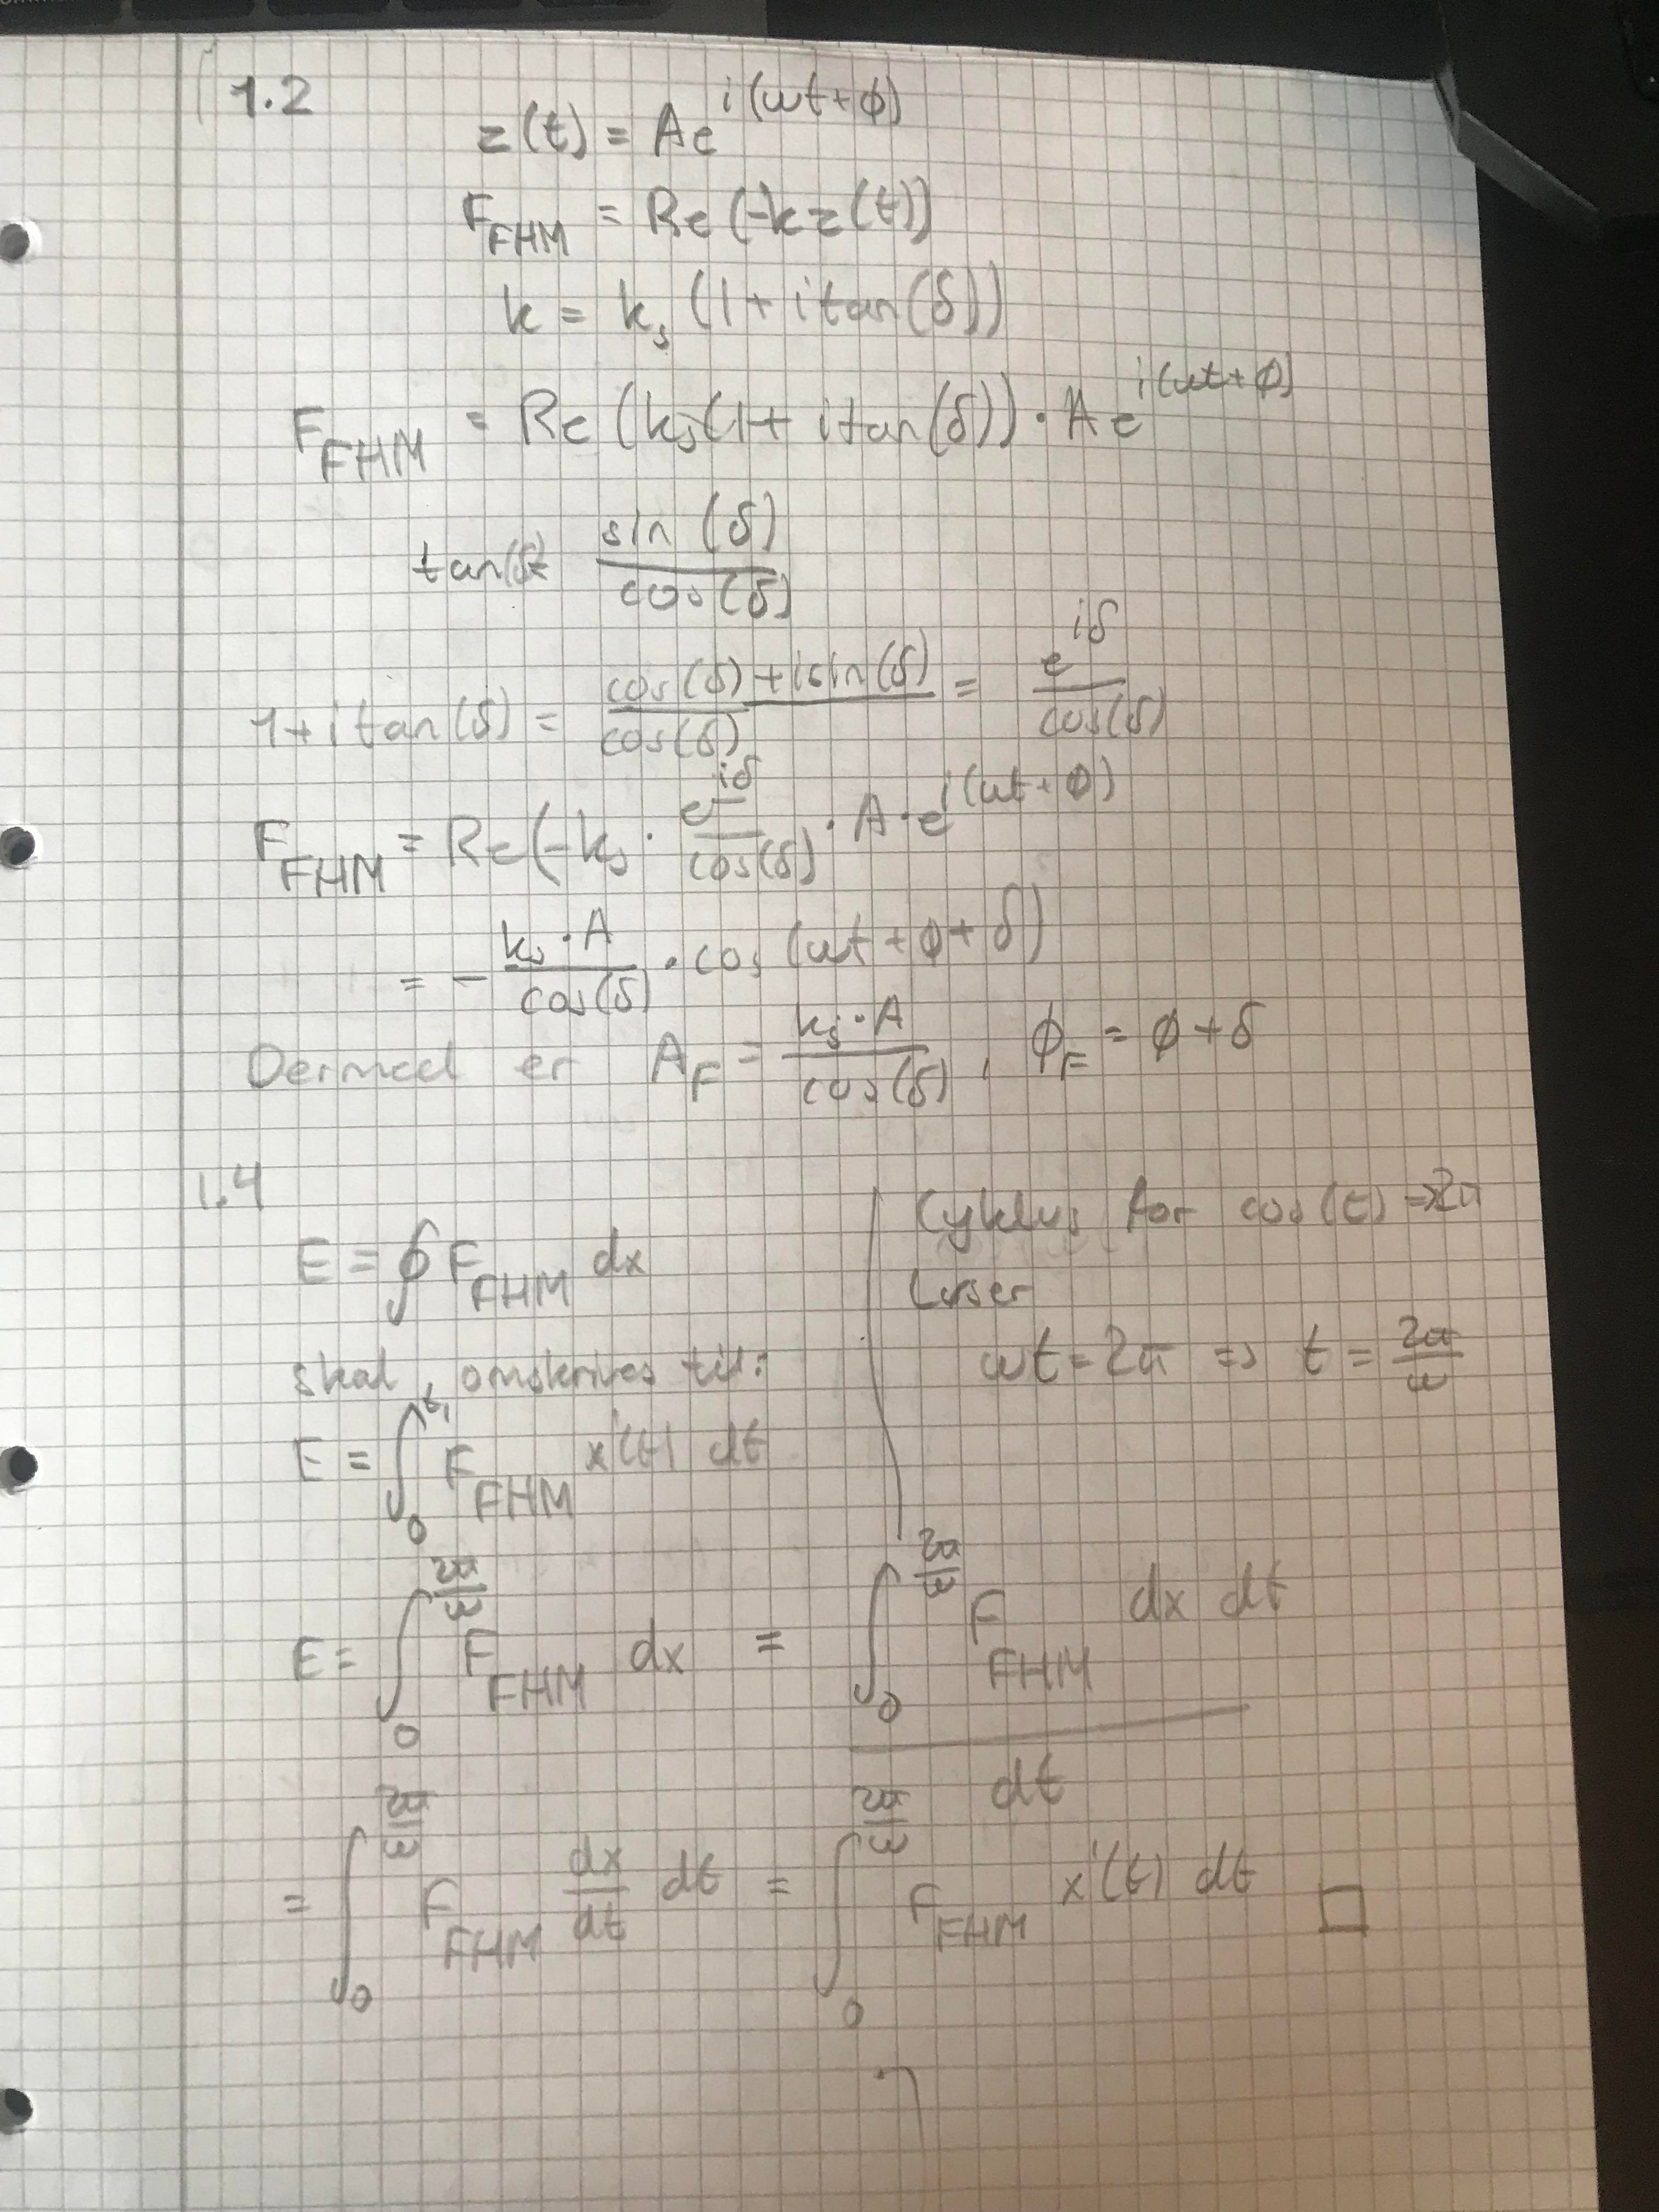 1.2
z(t) = Ae^{i(ωt+φ)}
F_{FHM} = Re(-kz(t))
k = k_s (1+i tan(δ))
F_{FHM} = Re(k_s(1+ i tan(δ)) · Ae^{i(ωt+φ)}
tan(δ)= \frac{sin(δ)}{cos(δ)}
1+i tan(δ) = \frac{cos(δ)+isin(δ)}{cos(δ)} = \frac{e^{iδ}}{cos(δ)}
F_{FHM} = Re(-k_s · \frac{e^{iδ}}{cos(δ)} · A · e^{i(ωt+φ)}
= - \frac{k_s · A}{cos(δ)} · cos(ωt+φ+δ)
Dermed er A_F = \frac{k_s · A}{cos(δ)}, φ_F = φ+δ
1.4
E = ∮ F_{FHM} dx
skal omskrives til:
E = ∫_0^{t_1} F_{FHM} x'(t) dt
Cyklus for cos(t) => 2π
Løser
ωt = 2π => t = \frac{2π}{ω}
E = ∫_0^{\frac{2π}{ω}} F_{FHM} dx = \frac{∫_0^{\frac{2π}{ω}} F_{FHM} dx dt}{dt}
= ∫_0^{\frac{2π}{ω}} F_{FHM} \frac{dx}{dt} dt = ∫_0^{\frac{2π}{ω}} F_{FHM} x'(t) dt □